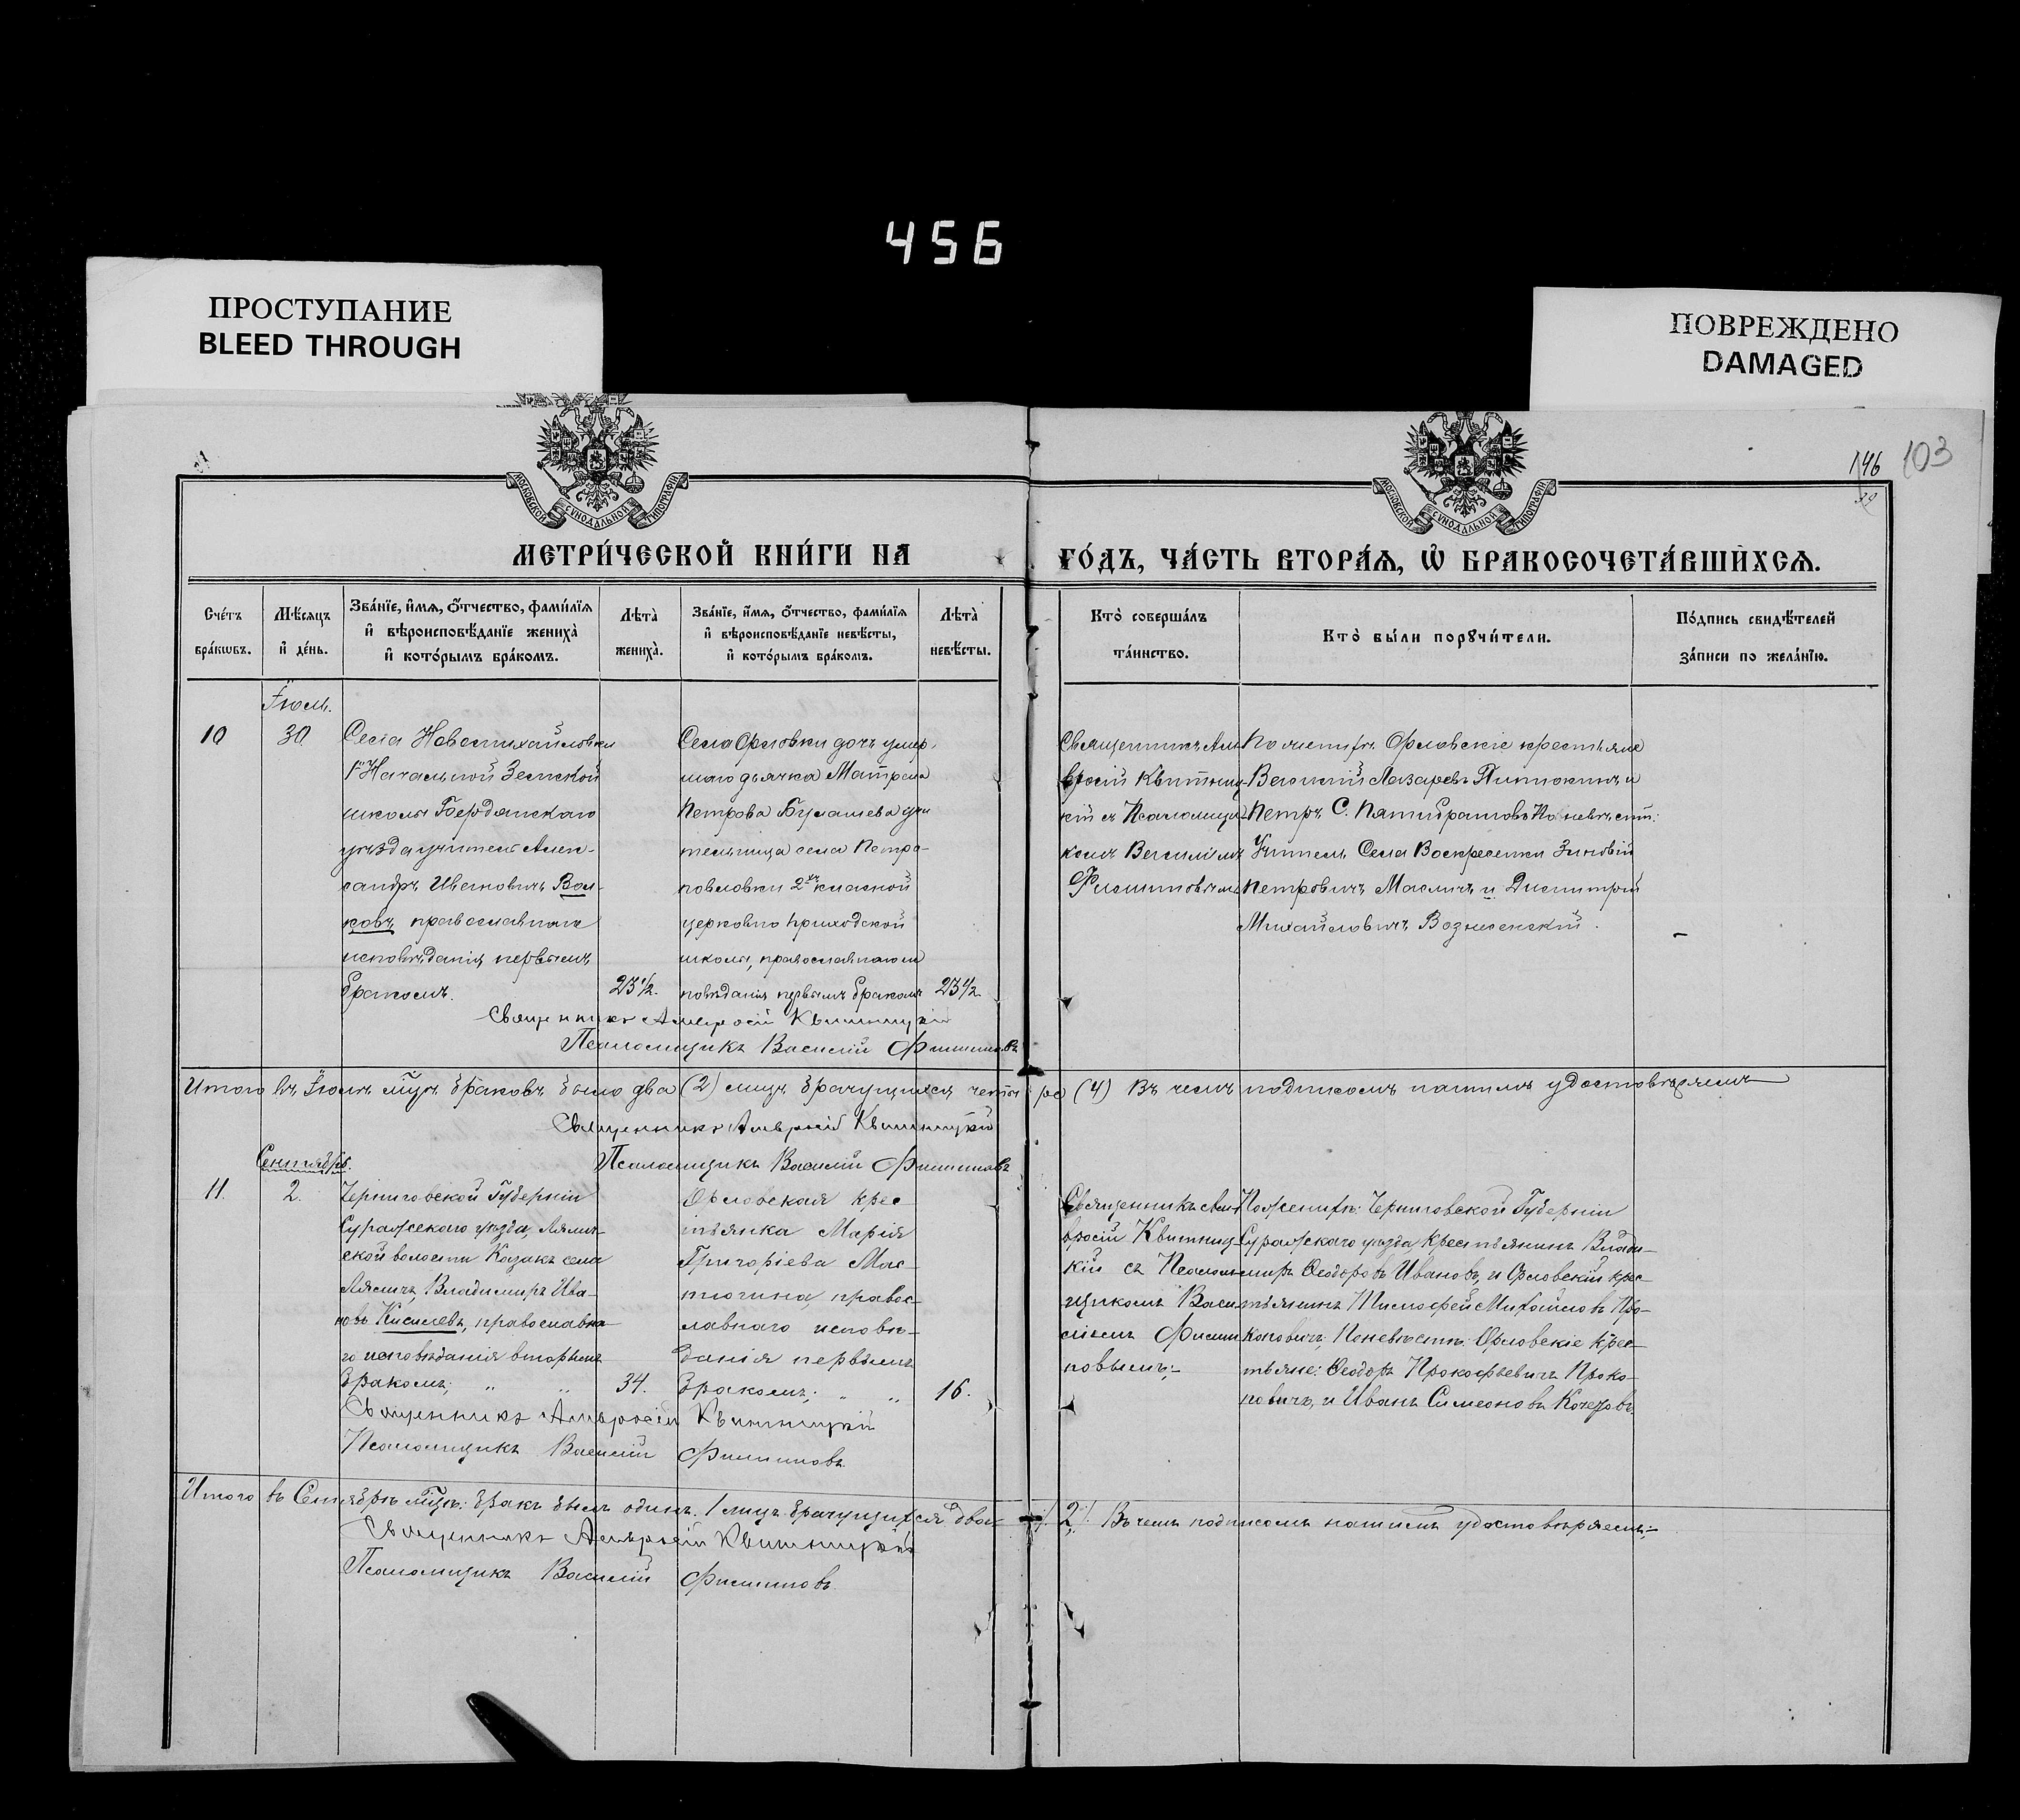 456
ПРОСТУПАНИЕ
BLEED THROUGH
ПОВРЕЖДЕНО
DAMAGED
146
103
МОСКОВСКОЙ СУНОДАЛЬНОЙ ТИПОГРАФІИ
МОСКОВСКОЙ СУНОДАЛЬНОЙ ТИПОГРАФІИ
МЕТРИ́ЧЕСКОЙ КНИ́ГИ НА
ГО́ДЪ, ЧА́СТЬ ВТОРА́Ѧ, Ѽ БРАКОСОЧЕТА́ВШИХСѦ.
Сче́тъ
бра́кѡвъ.
Мѣ́сяцъ
и҆ де́нь.
Зва́нїе, и҆́мѧ, ѻ҆́тчество, фами́лїѧ
и҆ вѣроисповѣ́данїе жениха̀
и҆ кото́рымъ бра́комъ.
Лѣ́та̀
жениха̀.
Зва́нїе, и҆́мѧ, ѻ҆́тчество, фами́лїѧ
и҆ вѣроисповѣ́данїе невѣ́сты,
и҆ кото́рымъ бра́комъ.
Лѣ́та̀
невѣ́сты.
Кто̀ соверша́лъ
та́инство.
Кто̀ бы́ли порꙋчи́тели.
По́дпись свидѣ́телей
за́писи по жела́нїю.
Іюль.
10
30
Села Новомихайловки
1й Начальной Земской
школы Бердянскаго
уѣзда учитель Алек-
сандръ Ивановичъ Вол-
ковъ, православнаго
исповѣданія, первымъ
бракомъ.
23 1/2.
Села Орловки дочь умер-
шаго дьячка Матрона
Петрова Булашева учи
тельница села Петро-
повловки 2-хъ класной
церковно приходской
школы, православнаго ис
повѣданія первымъ бракомъ
23 1/2
Священникъ Ам
вросій Квитниц-
кій съ Псаломщи-
комъ Василіемъ
Филиповымъ
По жениху Орловскіе крестьяне
Василій Лазаревъ и
Петръ С. Пятибратовъ По невѣстѣ:
Учитель Села Воскресенки Зиновій
Петровичъ Масличъ и Димитрій
Михайловичъ Вознесенскій.
Священникъ Амвросій Квитницкій
Псаломщикъ Василій Филиповъ
Итого въ Іюлѣ мцѣ браковъ было два (2) лицъ брачущихся четыре (4) Въ чемъ подписомъ нашимъ удостовѣряемъ
Священникъ Амвросій Квитницкій
Псаломщикъ Василій Филиповъ
Сентябрь.
11.
2.
Черниговской Губерніи
Суражскаго уѣзда, Лялич-
ской волости Козакъ села
Ляличъ, Владимиръ Ива-
новъ Киселевъ, православна-
го исповѣданія вторымъ
бракомъ; „ „
34.
Орловская крес
тьянка Марія
Григоріева Мас-
тюгина, правос-
лавнаго исповѣ-
данія первымъ
бракомъ; „ „
16.
Священникъ Ам
вросій Квитниц-
кій съ Псалом-
щикомъ Васи-
ліемъ Филип
повымъ;-
По жениху: Черниговской Губерніи
Суражскаго уѣзда, Крестьянинъ Влади-
миръ Ѳеодоровъ Ивановъ, и Орловскій крес-
тьянинъ Тимофей Михайловъ Про-
коповичъ; По невѣстѣ: Орловскіе крес-
тьяне: Ѳеодоръ Прокофьевичъ Проко-
повичъ, и Иванъ Симеоновъ
Священникъ Амвросій Квитницкій
Псаломщикъ Василій Филиповъ
Итого въ Сентябрѣ мцѣ: бракъ былъ одинъ. 1 лицъ брачущихся двое 2. Въ чемъ подписомъ нашимъ удостовѣряемъ;-
Священникъ Амвросій Квитницкій
Псаломщикъ Василій Филиповъ